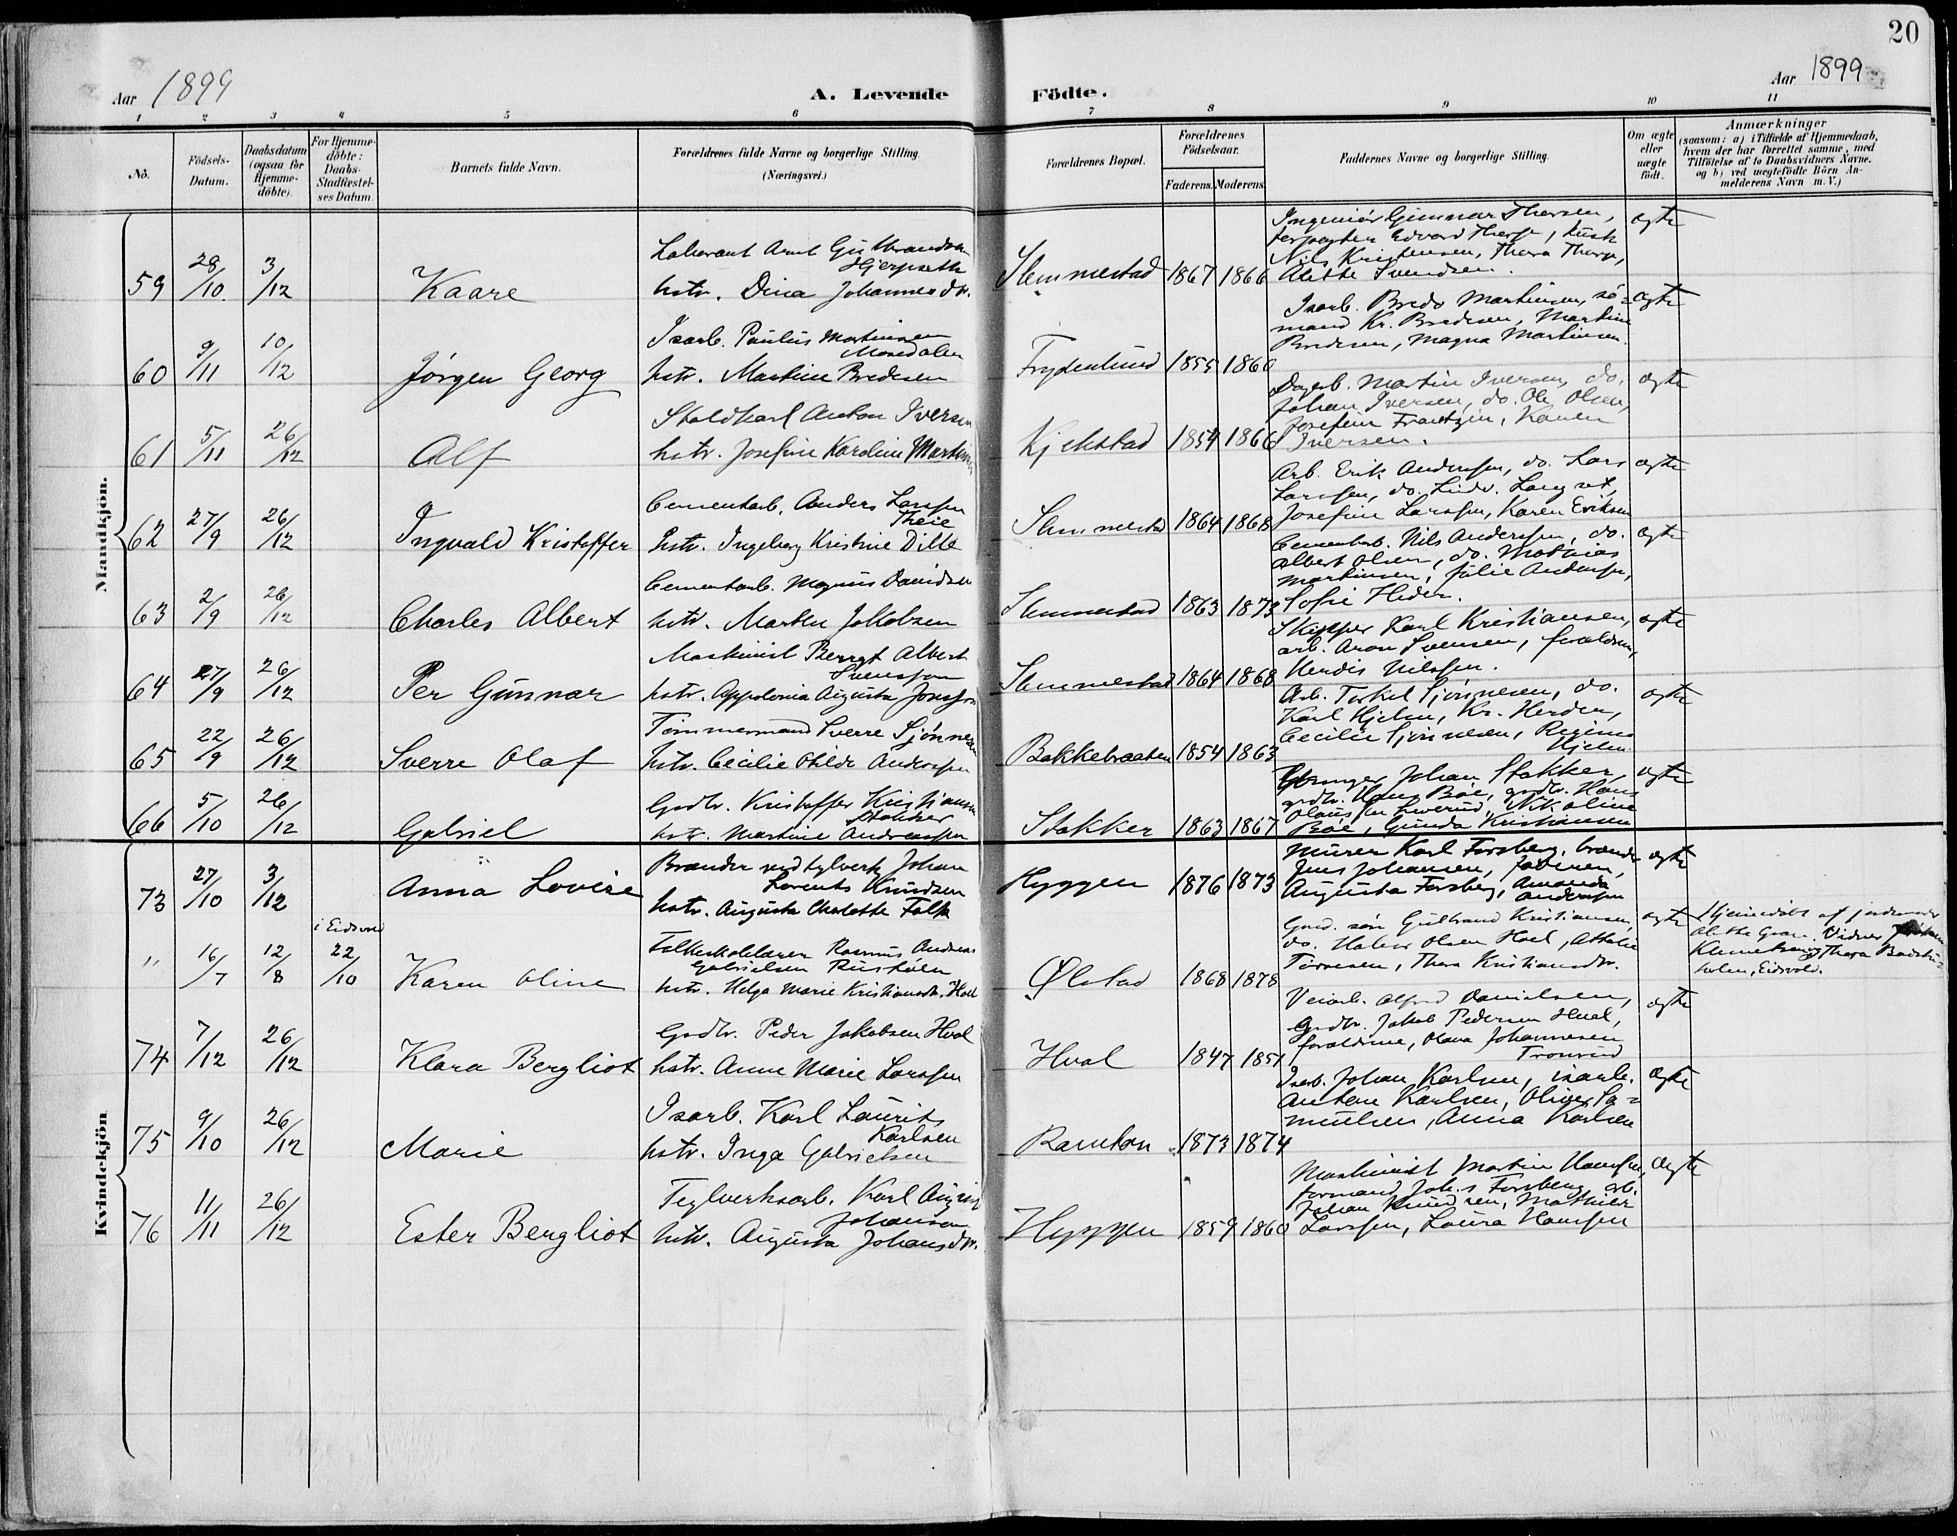 20
Aar 1899
A. Levende Födte.
Aar 1899
1 2 3 4 5 6 7 8 9 10 11
No.
Födsels-
Datum.
Daabsdatum
(ogsaa for
Hjemme-
döbte).
For Hjemme-
döbte:
Daabs-
Stadfæstel-
ses Datum
Barnets fulde Navn.
Forældrenes fulde Navne og borgerlige Stilling.
(Næringsvei.)
Forældrenes Bopæl.
Forældrenes
Födselsaar.
Faderens. Moderens.
Faddernes Navne og borgerlige Stilling.
Om ægte
eller
uægte
født.
Anmærkninger
(saasom: a) i Tilfælde af Hjemmedaab,
hvem der har forrettet samme, med
Tilföielse af to Daabsvidners Navne.
og b) ved uegtefödte Börn An-
melderens Navn m. V.)
Mandkjön.
59 28/10 3/12 Kaare
Laborant Arnt Gulbrandsen
hstr. Dina Johannesdtr.
Slemmestad 1867 1866
Ingeniör Gunnar
Nils Kristensen,
Alette Svendsen.
ægte
60 9/11 10/12 Jörgen Georg
Isarb. Paulus Martinsen
hstr. Martine Bredesen
Frydenlund 1855 1860
Isarb. Bredo Martinsen, sö-
mand Kr. Bredesen, Martine
Bredesen, Magna Martinsen.
ægte
61 5/11 26/12 Alf
Staldkarl Anton Iversen
hstr. Josefine Karoline
Kjekstad 1854 1866
Dagarb. Martin Iversen, do.
Johan Iversen, do. Ole Olsen,
Josefine Frantzen, Karen
Iversen.
ægte
62 27/9 26/12 Ingvald Kristoffer
Cementarb. Anders Larssen
Theie
hstr. Ingeborg Kristine
Slemmestad 1864 1868
Arb. Erik Anderssen, do. Lars
Larssen, do.
Josefine Larssen, Karen Eriksen
ægte
63 2/9 26/12 Charles Albert
Cementarb. Magnus Davidsen
hstr. Jakobsen
Slemmestad 1863 1873
Cementarb. Nils Anderssen, do.
Albert Olsen, do. Mathias
Martinsen, Julie Anderssen,
Sofie
ægte
64 27/9 26/12 Per Gunnar
Maskinist Bernt Albert
Svensson
hstr. Appolonia Augusta
Slemmestad 1864 1868
Skipper Karl Kristiansen,
arb. Aron Svensen, forældrene,
Herdis Nilssen.
ægte
65 22/9 26/12 Sverre Olaf
Tömmermand Sverre Sjönnesen
hstr. Cecilie Otilde Anderssen
Bakkebraaten 1854 1863
Arb. Torkel Sjönnesen, do.
Karl Hjelm, Kr.
Cecilie Sjönnesen,
Hjelm
ægte
66 5/10 26/12 Gabriel
Gaardbr. Kristoffer Kristiansen
Stokker
hstr. Martine Andreassen
Stokker 1863 1867
Johan Stokker,
grdbr. Hans Böe, grdbr. Hans
Nikoline
Böe, Gunda Kristiansen
ægte
Kvindekjön
73 27/10 3/12 Anna Lovise
Brænder ved tglverk Johan
Lorents Knudsen
hstr. Augusta Charlotte Falk
Hyggen 1876 1873
Murer Karl Forsberg, brænder
Jens Johansen, faderen,
Augusta Forsberg, Amanda
Anderssen
ægte
i Eidsvold
" 16/7 12/8 22/10 Karen Oline
Folkeskolelærer Rasmus Andreas
Gabrielsen
hstr. Helga Marie Kristiansdtr. Hoel
Ölstad 1868 1878
Gmd. sön Gulbrand Kristiansen
do. Halvor Olsen Hoel,
Thora Kristiansdtr.
ægte
Hjemdöbt af jordemoder
Alette Gran. Vidner
Thora
Eidsvold.
74 7/12 26/12 Klara Bergliot
Grdbr. Peder Jakobsen Hval
hstr. Anne Marie Larssen
Hval 1847 1851
Veiarb. Alfred Danielsen,
Grdbr. Jakob Pedersen Hval,
forældrene, Olava Johannesen
Tronrud
ægte
75 9/10 26/12 Marie
Isarb. Karl Laurits
Karlsen
hstr. Inga Gabrielsen
Ramton 1873 1874
Isarb. Johan Karlsen, isarb.
Anton Karlsen, Oliver Sa-
muelsen, Anna Karlsen
ægte
76 11/11 26/12 Ester Bergliot
Teglverksarb. Karl August
Johansen
hstr. Augusta Johansdtr.
Hyggen 1859 1860
Maskinist Martin Hanssen,
formand Johs Forsberg, arb.
Johan Knudsen, Mathilde
Larssen, Laura Hanssen
ægte